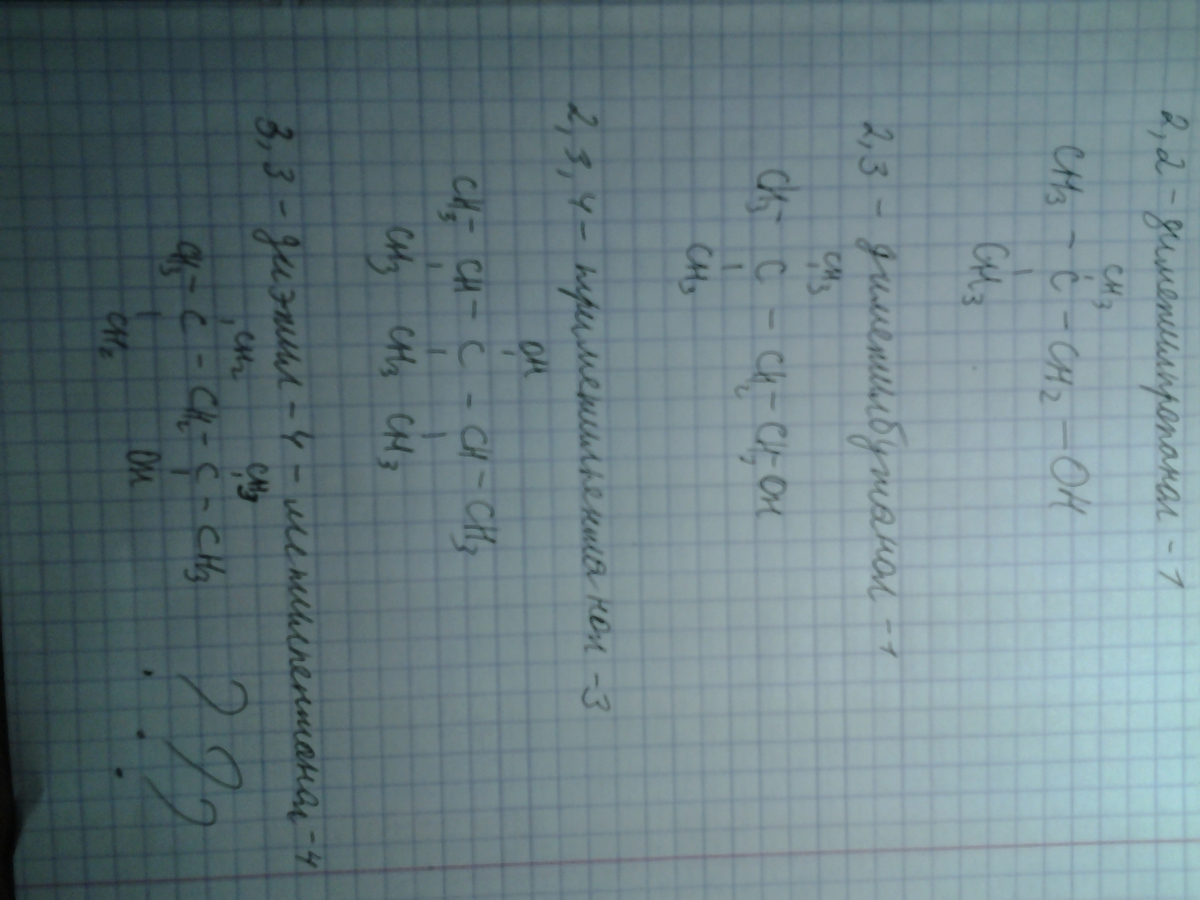 2,2-диметилпропанол-1
CH3
CH3 - C - CH2 - OH
CH3
2,3 - диметилбутанол -1
CH3
CH3 - C - CH2 - CH2 OH
CH3
2,3,4 - триметилпентанол -3
OH
CH3 - CH - C - CH - CH3
CH3 CH3 CH3
3,3 - диэтил - 4 - метилпентанол -4
CH2 CH3
CH3 - C - CH2 - C - CH3 ???
CH2 OH